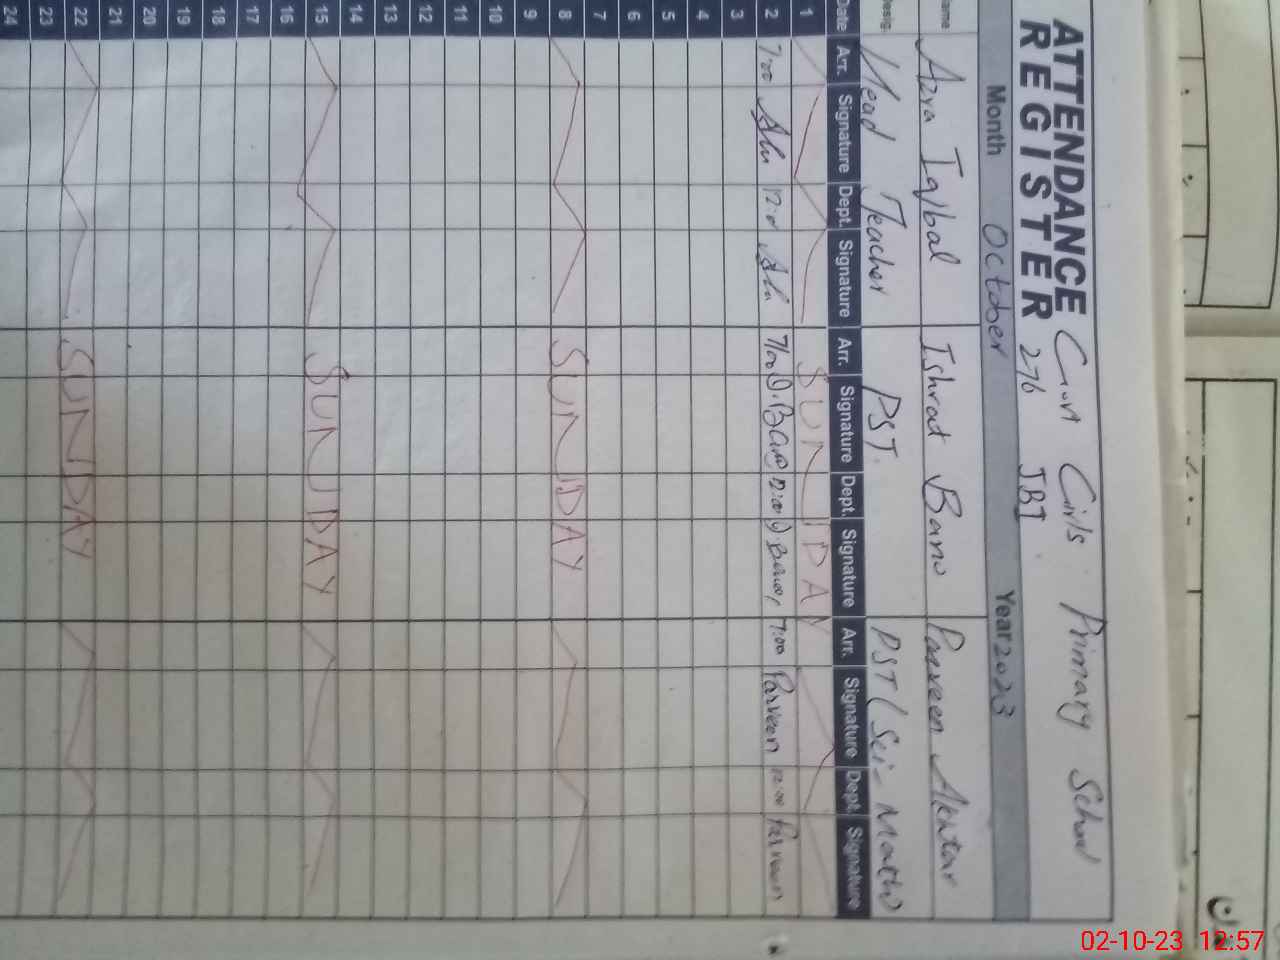 ATTENDANCE Govt Girls Primary School
REGISTER 276 JBI
Month October Year 2023
Name Azra Iqbal Ishrat Bano Parveen Akhtar
Desig. Head Teacher PST. PST (Sci-Math)
Date Arr. Signature Dept. Signature Arr. Signature Dept. Signature Arr. Signature Dept. Signature
1 SUNDAY
2 7:00 12:0 7:00 I.Bano 12:00 I.Bano 7:00 Parveen 12:00 Parveen
3
4
5
6
7
8 SUNDAY
9
10
11
12
13
14
15 SUNDAY
16
17
18
19
20
21
22 SUNDAY
23
24
02-10-23 12:57